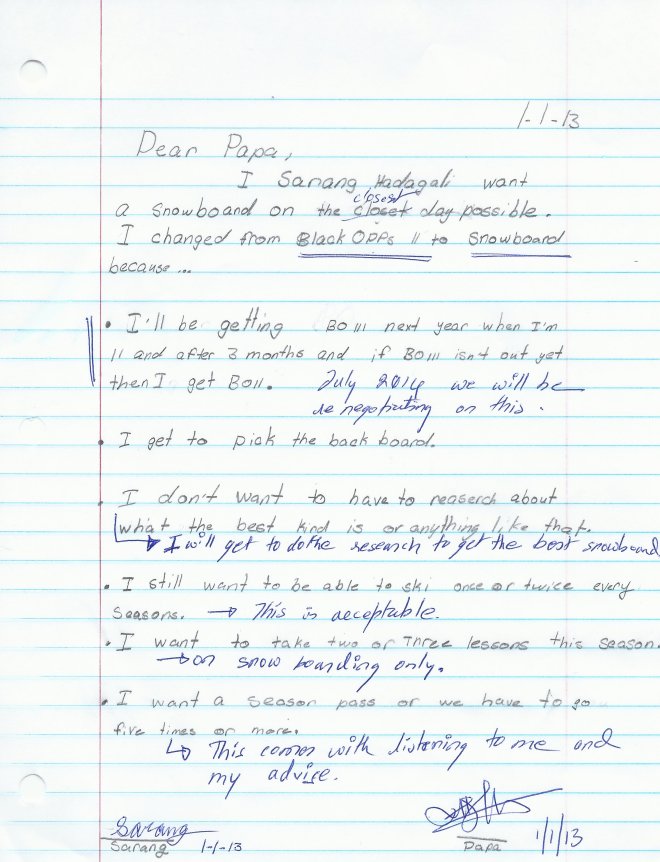 1-1-13
Dear Papa,
I Sarang Hadagali want
closest
a snowboard on the closet day possible.
I changed from Black OPPs II to Snowboard
because...
• I'll be getting BO III next year when I'm
11 and after 3 months and if BO III isn't out yet
then I get BO II. July 2014 we will be
re negotiating on this.
• I get to pick the back board.
• I don't want to have to reaserch about
what the best kind is or anything like that.
→ I will get to do the research to get the best snowboard
• I still want to be able to ski once or twice every
seasons. → This is acceptable.
• I want to take two or Three lessons this season.
→ on snow boarding only.
• I want a season pass or we have to go
five times or more.
↳ This comes with listening to me and
my advise.
Sarang
Sarang 1-1-13
Papa 1/1/13